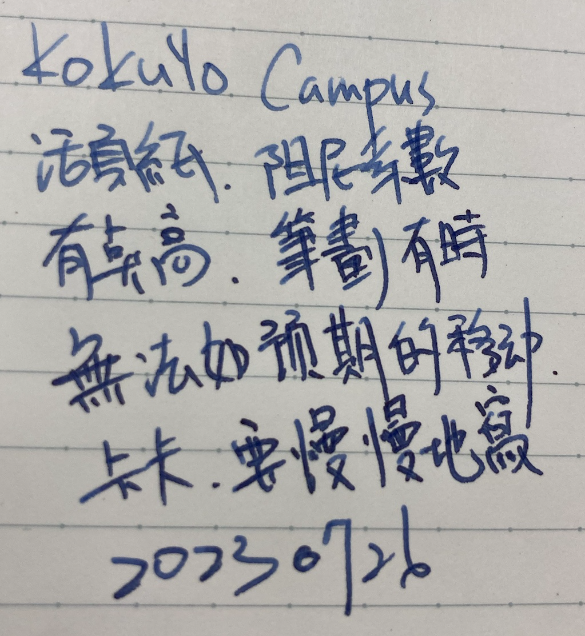 Kokuyo Campus
活頁紙．阻尼系數
有点高．筆劃有時
無法如預期的移动．
卡卡．要慢慢地寫
20230726